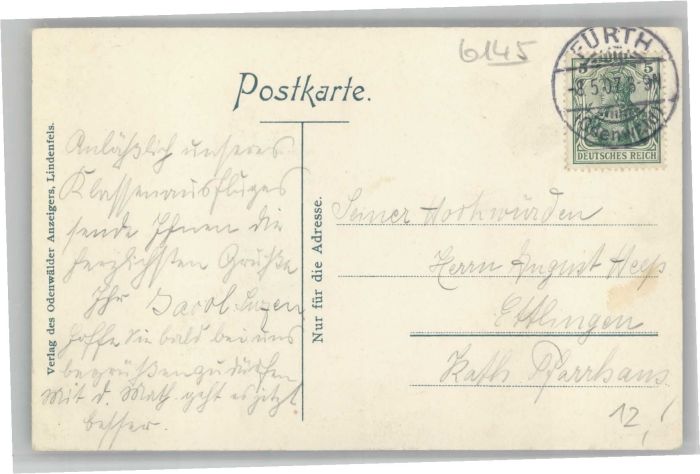 6145
FÜRTH
(Odenwald)
-8.5.07.
5 5
DEUTSCHES REICH
Postkarte.
Verlag des Odenwälder Anzeigers, Lindenfels.
Anläßlich unseres
Klassenausfluges
sende Ihnen die
herzlichsten Grüße
Ihr Jacob
hoffe Sie bald bei uns
begrüßen zu dürfen
Mit d. Math. geht es jetzt
besser.
Nur für die Adresse.
Seiner Hochwürden
Herrn August Heep
Ettlingen
Kath. Pfarrhaus
12,